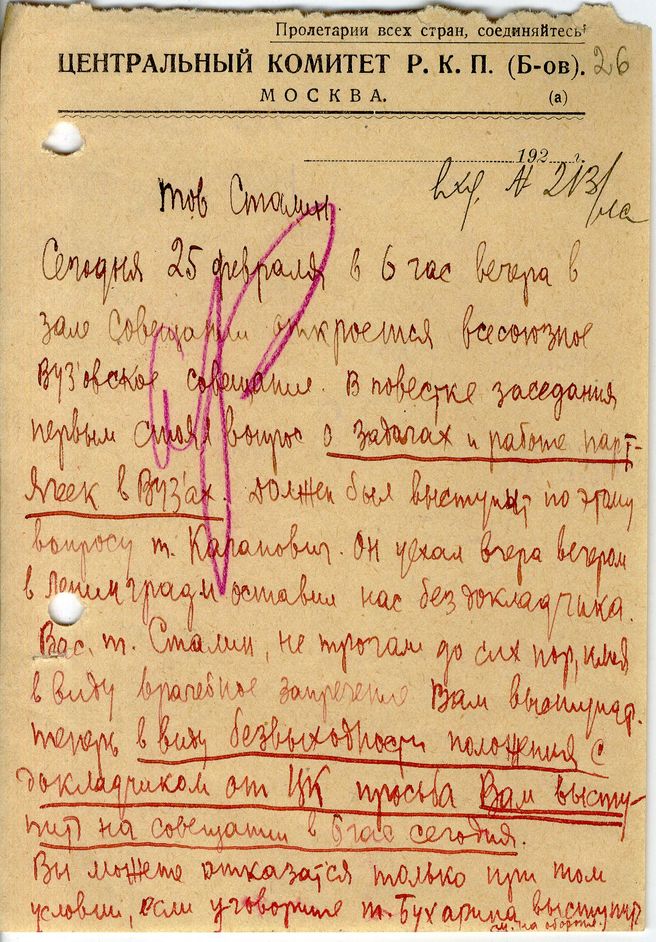 Пролетарии всех стран, соединяйтесь!
ЦЕНТРАЛЬНЫЙ КОМИТЕТ Р. К. П. (Б-ов). 26
МОСКВА. (а)
192 г.
вхд. № 213/
тов Сталин.
Сегодня 25 февраля в 6 час вечера в
зале Совещании откроется всесоюзное
ВУЗ'овское совещание. В повестке заседания
первым стоял вопрос о задачах и работе парт-
ячеек в ВУЗ'ах. Должен был выступат по этому
вопросу т. Каганович. Он уехал вчера вечером
в Ленинград и оставил нас без докладчика.
Вас, т. Сталин, не трогали до сих пор, имея
в виду врачебное запрещение Вам выступат.
теперь в виду безвыходности положения с
докладчиком от ЦК просьба Вам высту-
пит на совещании в 6 час сегодня.
Вы можете отказатся только при том
условии, если уговорите т. Бухарина выступит
см. на обороте.